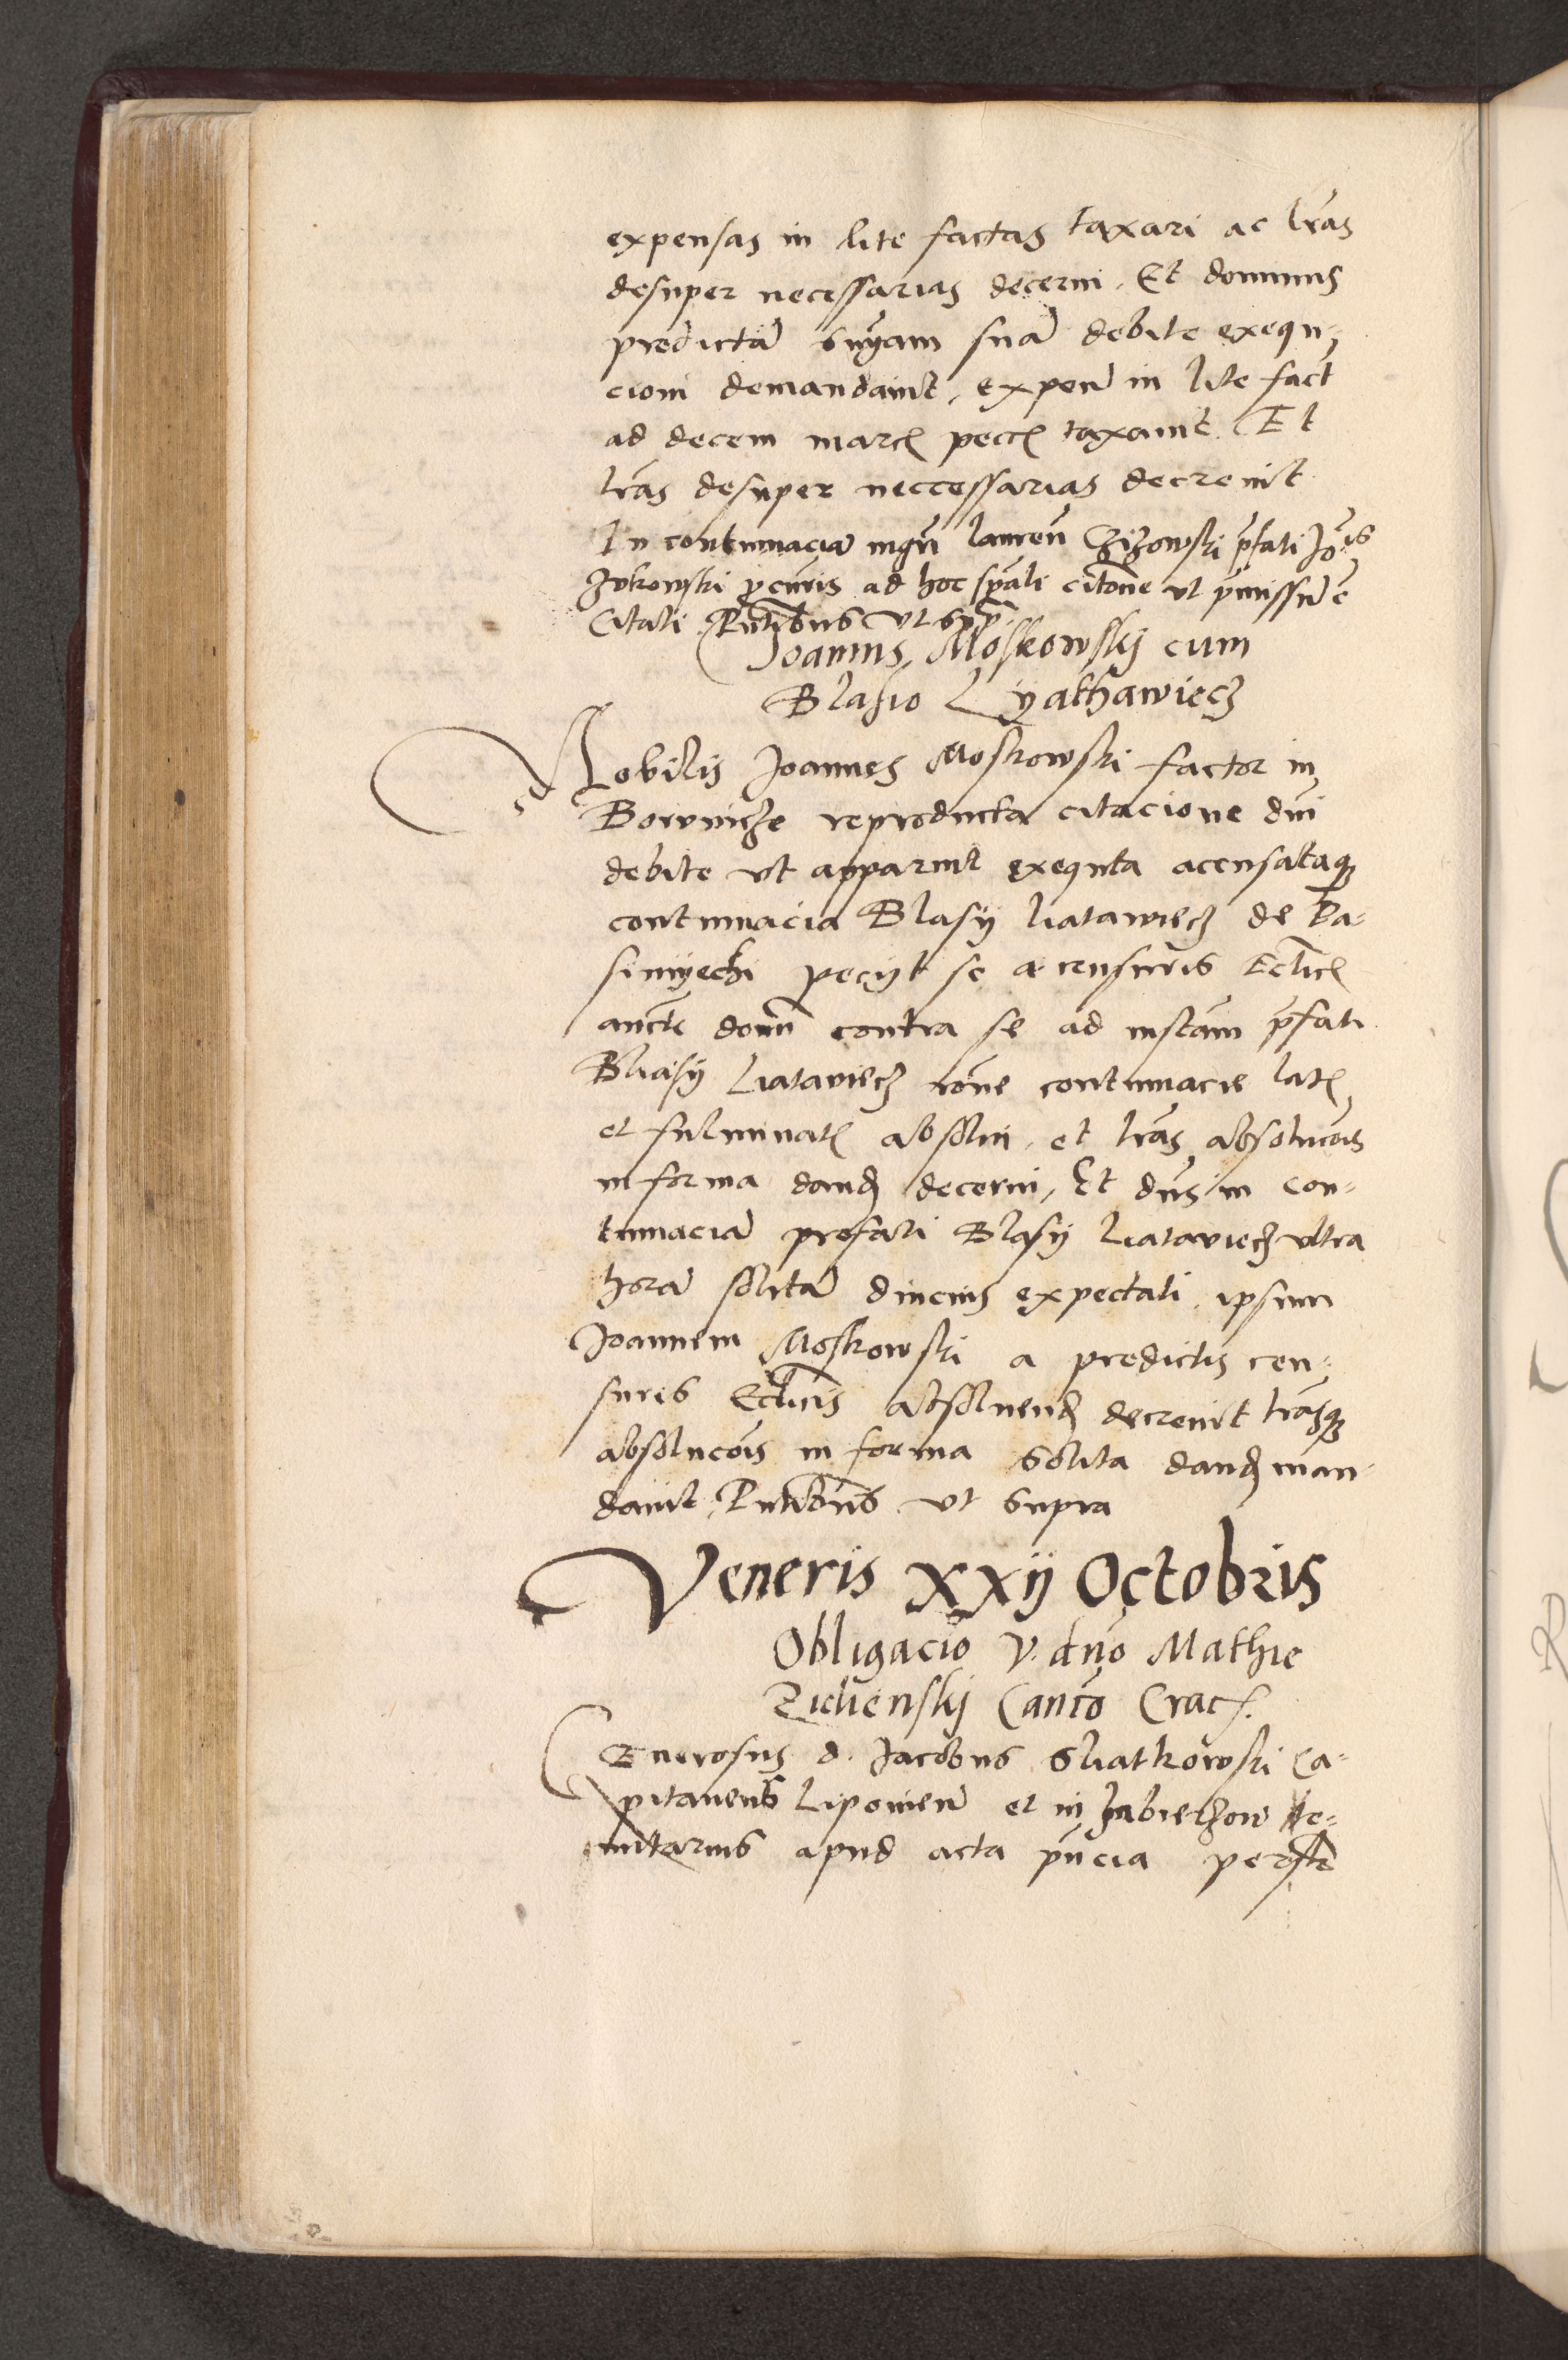 expensas in lite factas taxari ac lras
desuper necessarias decerni. Et dominus
predictā snyam suā debite exequ-
cioni demandavit, expen in lite fact
ad decem marc pecc taxavit. Et
lras desuper neccessarias decrevit
In contumaciā mgri lauren pfati Jois
Zukowski pcuris ad hoc spali citone ut pmissū ē
Citati Pntibus ut spra
Joannis Moskowskij cum
Blasio Lyathawiecz
Nobilis Joannes Moskowski factor in
reproducta citacione dni
debite vt apparuit exequta acusataq
contumacia Blasij liatawiecz de
peciit se a censuris Eclicis
aucte contra se ad instam pfati
Bliasij Liataviecz rone contumacie lat
et fulminat absolui, et lras absolucois
in forma dand decerni, Et dns in con-
tumaciā prefati Blasij liataviecz vltra
horā solitā diucius expectati, ipsum
Joannem Moskowski a predictis cen-
suris Eclicis absoluend decrevit lrasq
absolucois in forma solita dand man-
davit, Pntibus vt supra
Veneris xxij Octobris
Obligacio v. dno Mathie
Canco Crac.
Generosus d. Jacobus Sliatkowski Ca-
pitaneus Lipovien et in te-
nutarius apud acta pncia